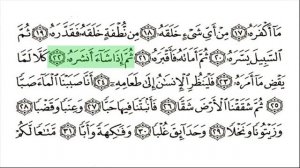 مَا أَكْفَرَهُ ﴿١٧﴾ مِنْ أَيِّ شَيْءٍ خَلَقَهُ ﴿١٨﴾ مِن نُّطْفَةٍ خَلَقَهُ فَقَدَّرَهُ ﴿١٩﴾ ثُمَّ
السَّبِيلَ يَسَّرَهُ ﴿٢٠﴾ ثُمَّ أَمَاتَهُ فَأَقْبَرَهُ ﴿٢١﴾ ثُمَّ إِذَا شَاءَ أَنشَرَهُ ﴿٢٢﴾ كَلَّا لَمَّا
يَقْضِ مَا أَمَرَهُ ﴿٢٣﴾ فَلْيَنظُرِ الْإِنسَانُ إِلَىٰ طَعَامِهِ ﴿٢٤﴾ أَنَّا صَبَبْنَا الْمَاءَ صَبًّا
﴿٢٥﴾ ثُمَّ شَقَقْنَا الْأَرْضَ شَقًّا ﴿٢٦﴾ فَأَنبَتْنَا فِيهَا حَبًّا ﴿٢٧﴾ وَعِنَبًا وَقَضْبًا ﴿٢٨﴾
وَزَيْتُونًا وَنَخْلًا ﴿٢٩﴾ وَحَدَائِقَ غُلْبًا ﴿٣٠﴾ وَفَاكِهَةً وَأَبًّا ﴿٣١﴾ مَّتَاعًا لَّكُمْ